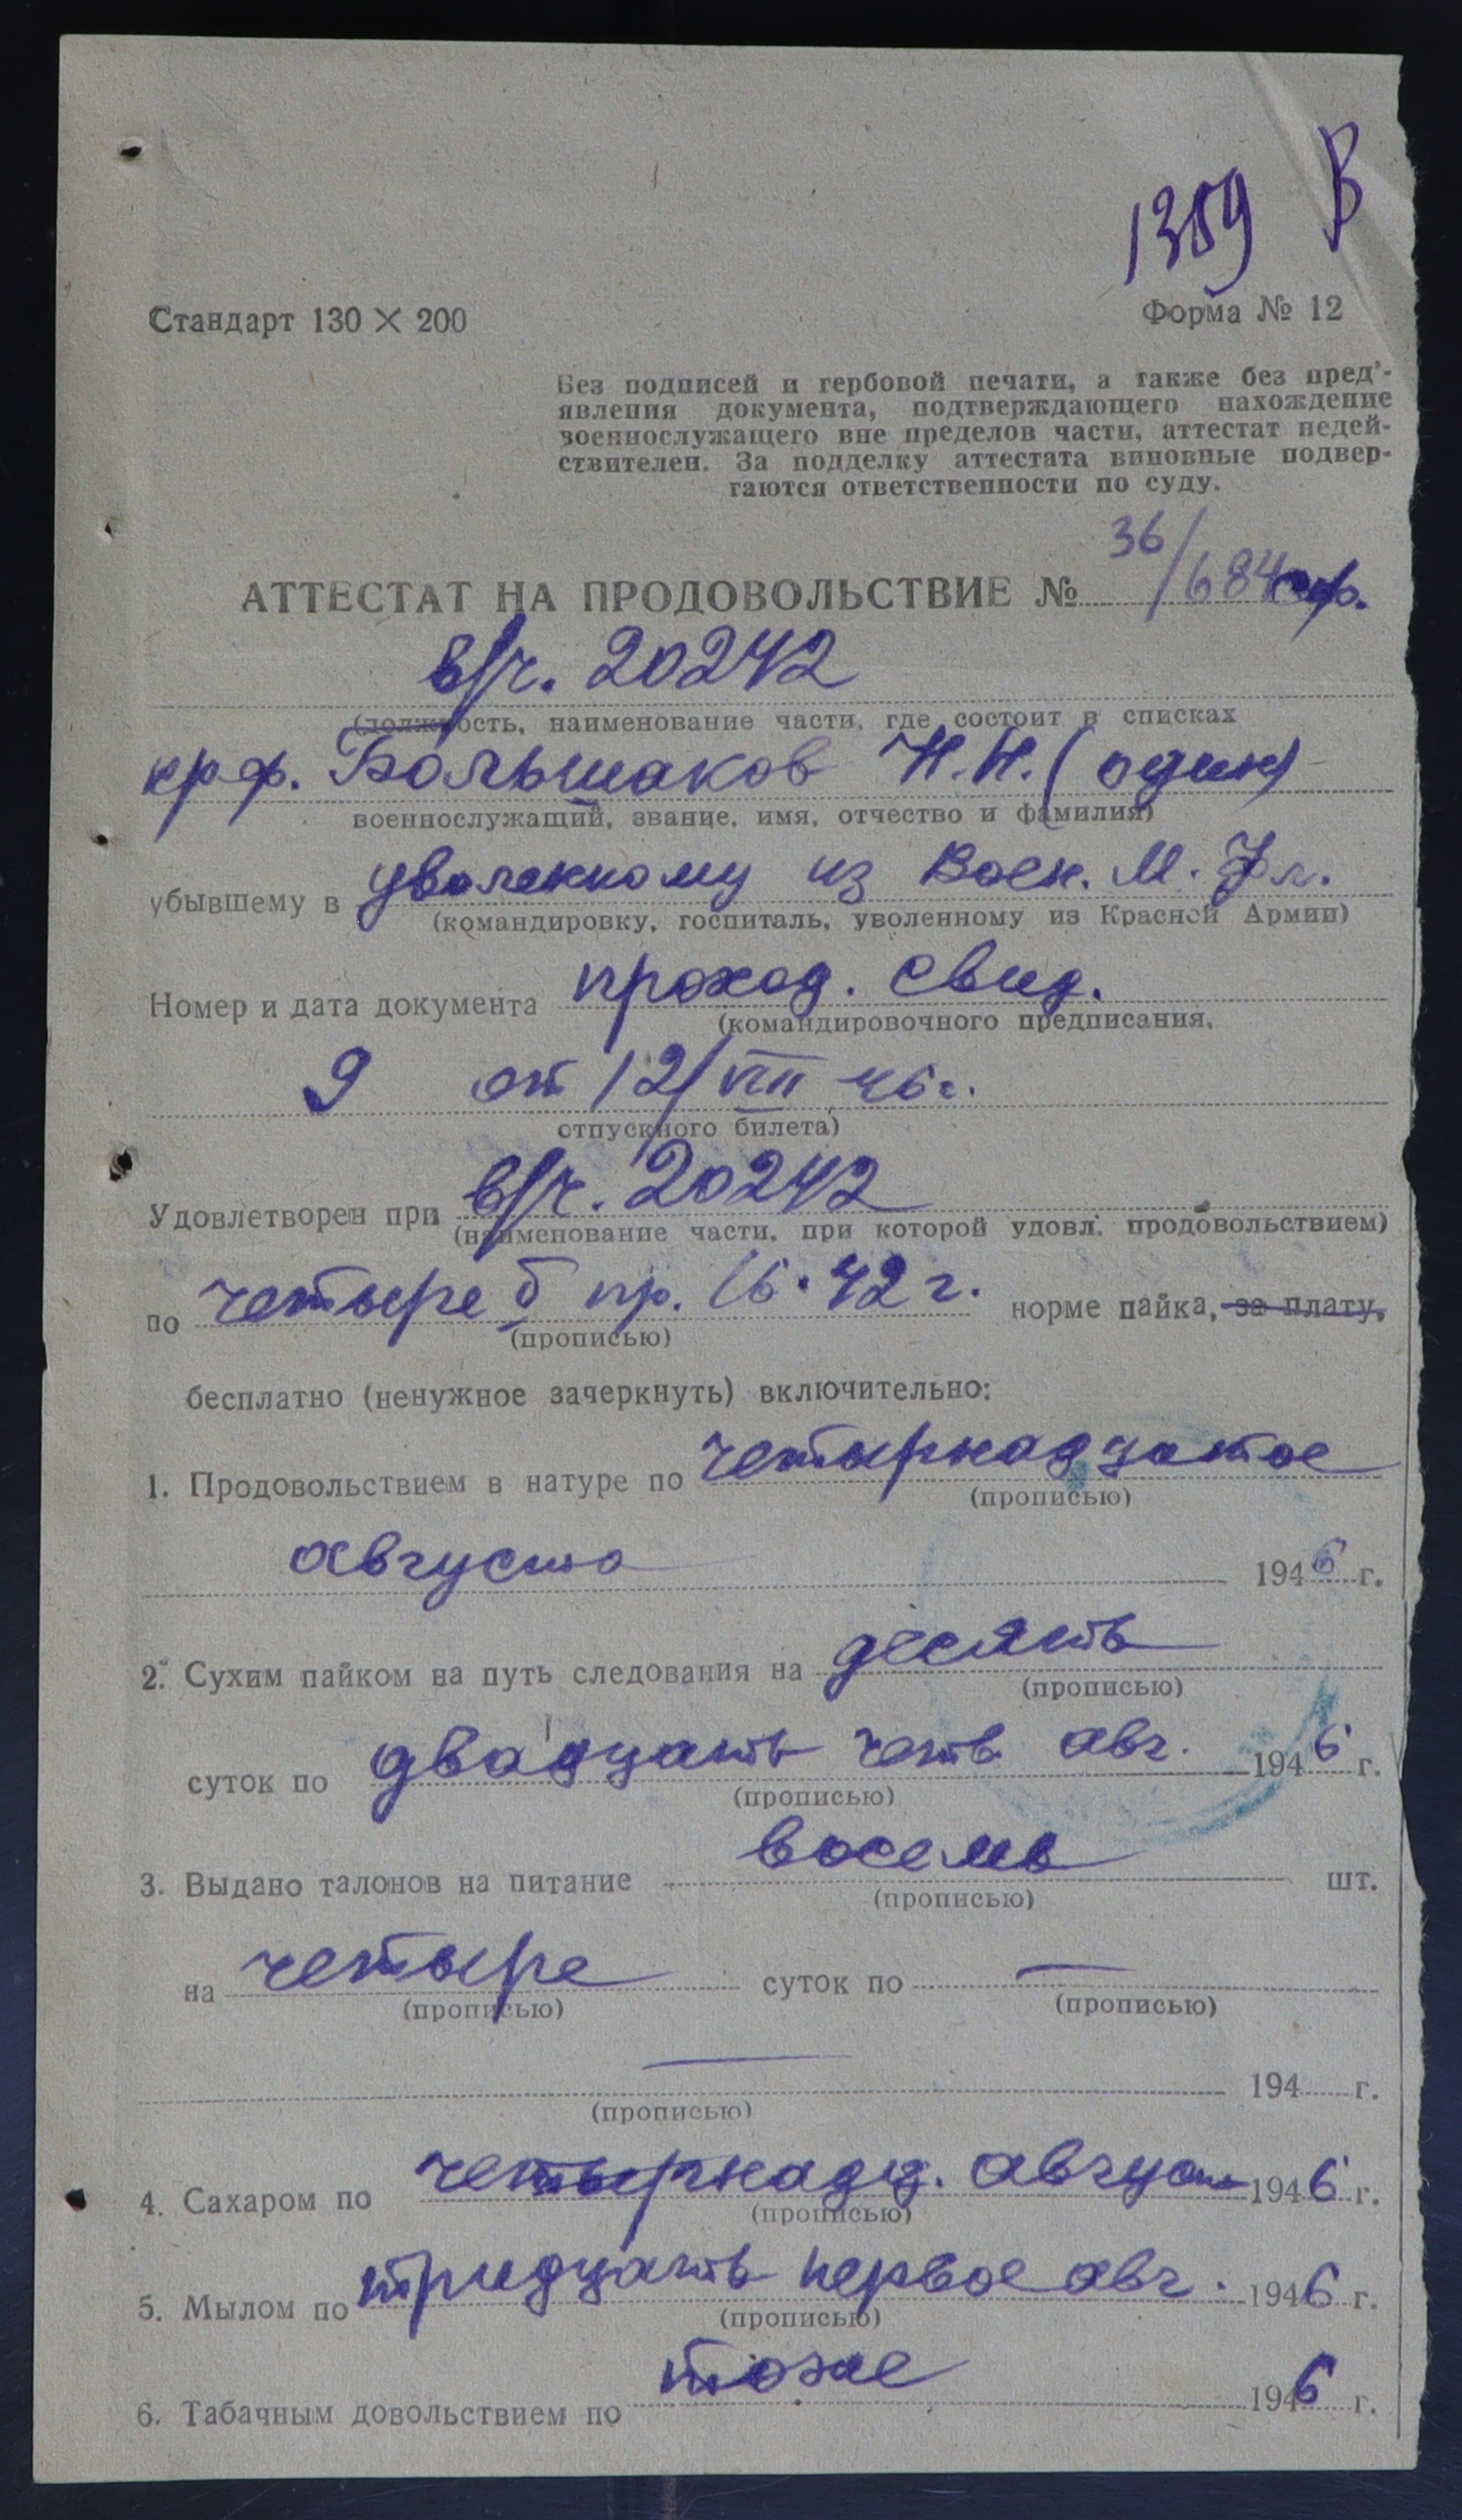 1389 В
Стандарт 130 × 200
Форма № 12
Без подписей и гербовой печати, а также без пред'-
явления документа, подтверждающего нахождение
военнослужащего вне пределов части, аттестат недей-
ствителен. За подделку аттестата виновные подвер-
гаются ответственности по суду.
АТТЕСТАТ НА ПРОДОВОЛЬСТВИЕ № 36/684
в/ч. 20242
(должность, наименование части, где состоит в списках
крф. Большаков Н.Н. (один)
военнослужащий, звание, имя, отчество и фамилия)
убывшему в уволенному из Воен. М. Фл.
(командировку, госпиталь, уволенному из Красной Армии)
Номер и дата документа проход. свид.
(командировочного предписания,
9 от 12/VIII 46 г.
отпускного билета)
Удовлетворен при в/ч. 20242
(наименование части, при которой удовл. продовольствием)
по четыре б пр. 16·42 г. норме пайка, за плату,
(прописью)
бесплатно (ненужное зачеркнуть) включительно:
1. Продовольствием в натуре по четырнадцатое
(прописью)
августа 1946 г.
2. Сухим пайком на путь следования на десять
(прописью)
суток по двадцать четв. авг. 1946 г.
(прописью)
3. Выдано талонов на питание восемь шт.
(прописью)
на четыре суток по —
(прописью) (прописью)
— 194 г.
(прописью)
4. Сахаром по четырнадц. август 1946 г.
(прописью)
5. Мылом по тридцать первое авг. 1946 г.
(прописью)
6. Табачным довольствием по тоже 1946 г.